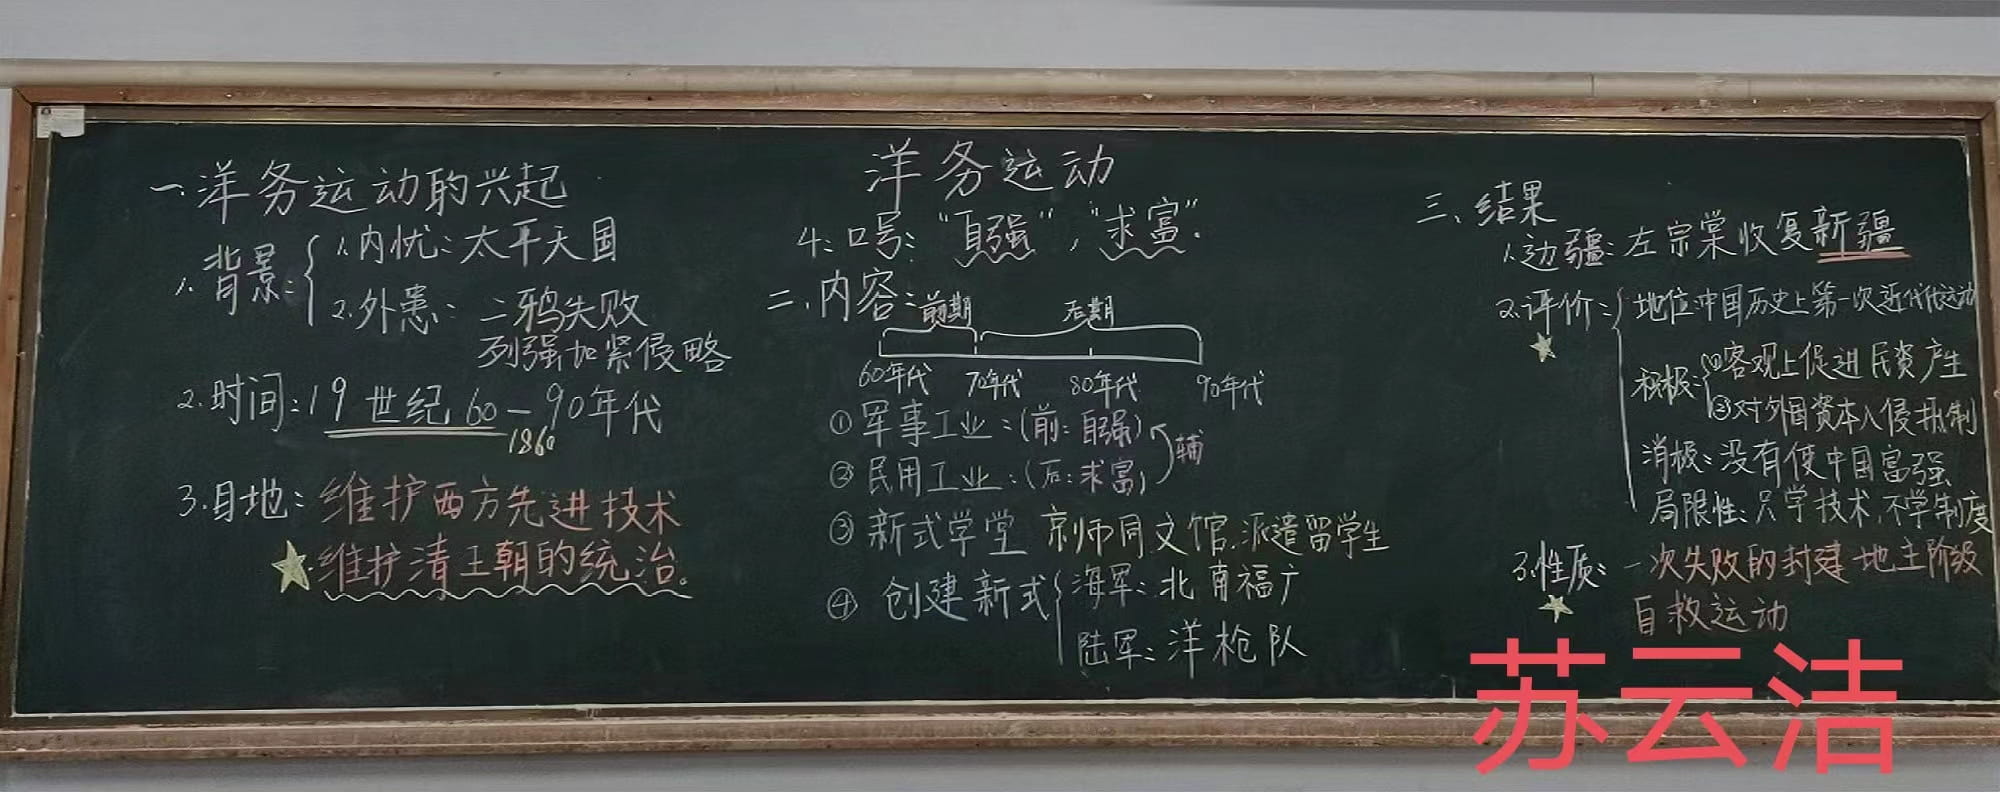 洋务运动
一、洋务运动的兴起
1.背景:
1.内忧:太平天国
2.外患:二鸦失败
列强加紧侵略
2.时间:19世纪60—90年代
1860
3.目地:维护西方先进技术
维护清王朝的统治。
4.口号:“自强”,“求富”.
二、内容:
前期 后期
60年代 70年代 80年代 90年代
①军事工业:(前:自强)
②民用工业:(后:求富)
辅
③新式学堂 京师同文馆.派遣留学生
④创建新式
海军:北南福广
陆军:洋枪队
三、结果
1.边疆:左宗棠收复新疆
2.评价:
地位:中国历史上第一次近代化运动
积极:①客观上促进民资产生
②对外国资本入侵抵制
消极:没有使中国富强
局限性:只学技术,不学制度
3.性质:一次失败的封建地主阶级
自救运动
苏云洁